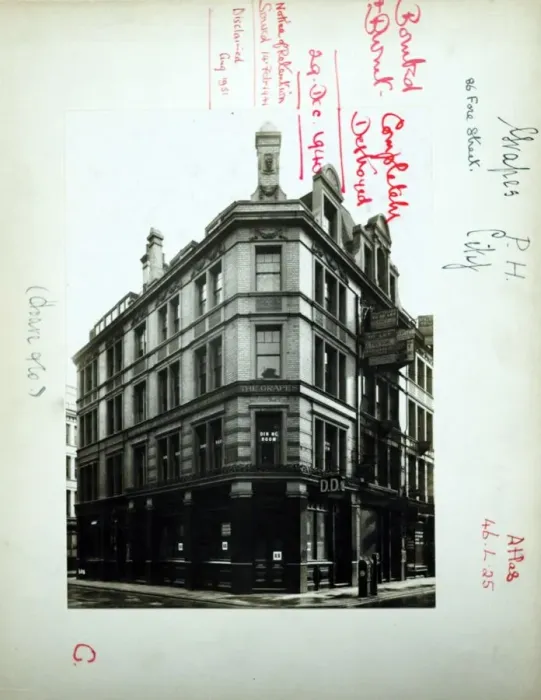 Grapes P.H.
City
86 Fore Street.
Bombed
& Burnt. Completely
Destroyed
29. Dec. 1940
Notice of Retention
Served 14 Feb 1941
Disclaimed
Aug 1951
THE GRAPES
DINING
ROOM
D.D.
Atlas
46.L.25
C.